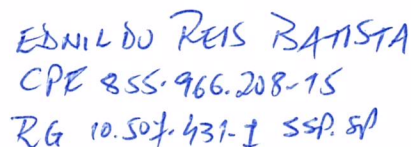 EDNILDO REIS BATISTA
CPF 855.966.208-15
RG 10.507.431-1 SSP.SP